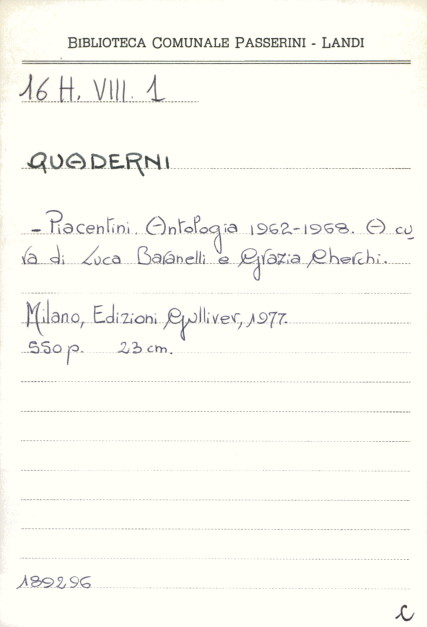 BIBLIOTECA COMUNALE PASSERINI - LANDI
16 H. VIII. 1
QUADERNI
- Piacentini. Antologia 1962-1968. A cu
ra di Luca Baranelli e Grazia Cherchi.
Milano, Edizioni Gulliver, 1977.
550 p. 23 cm.
189296
C